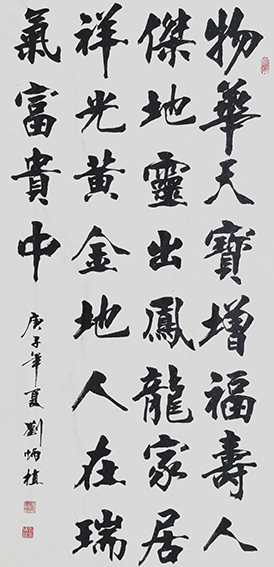 物華天寶增福壽人
傑地靈出鳳龍家居
祥光黃金地人在瑞
氣富貴中
庚子年夏劉炳植